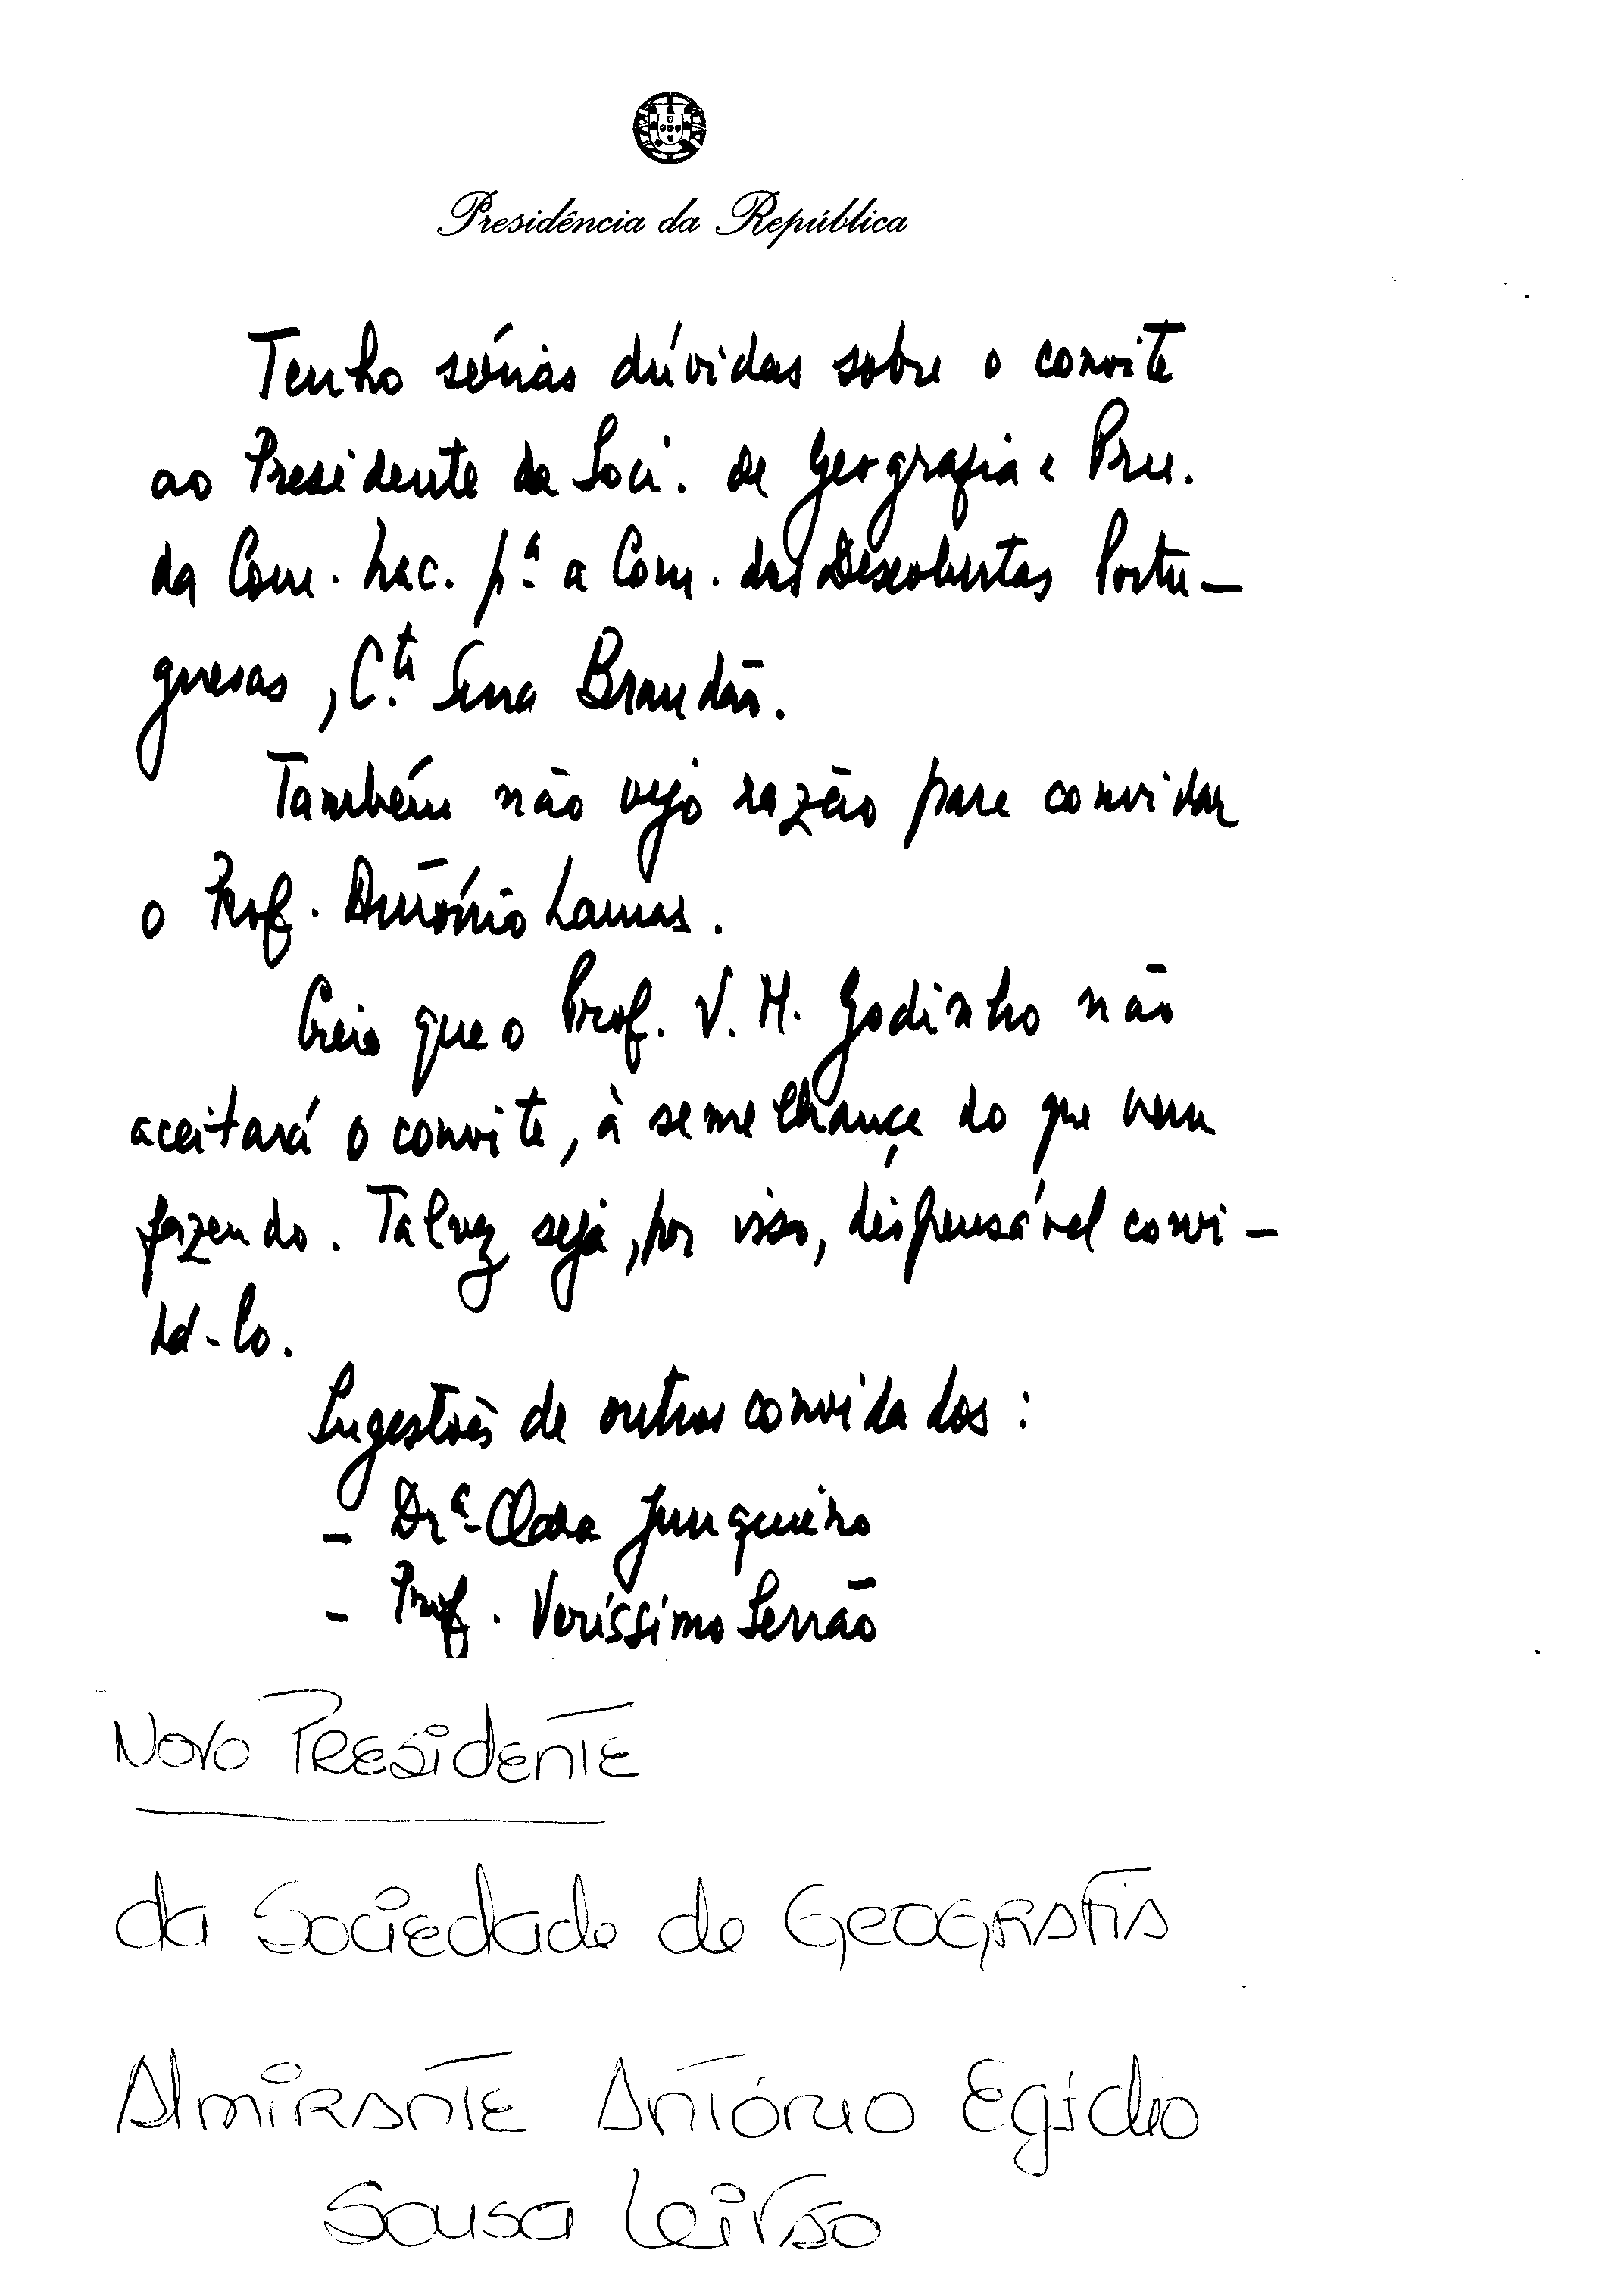 Presidência da República
Tenho sérias dúvidas sobre o convite
ao Presidente da Soci. de Geografia e Pres.
da Com. Nac. pª a Com. das Descobertas Portu-
guesas, C.te Serra Brandão.
Também não vejo razão para convidar
o Prof. António Lamas.
Creio que o Prof. V. M. Godinho não
aceitará o convite, à semelhança do que vem
fazendo. Talvez seja, por isso, dispensável convi-
dá-lo.
Sugestões de outros convidados:
- Drª Clara Junqueiro
- Prof. Veríssimo Serrão
Novo Presidente
da Sociedade de Geografia
Almirante António Egídio
Sousa Leitão